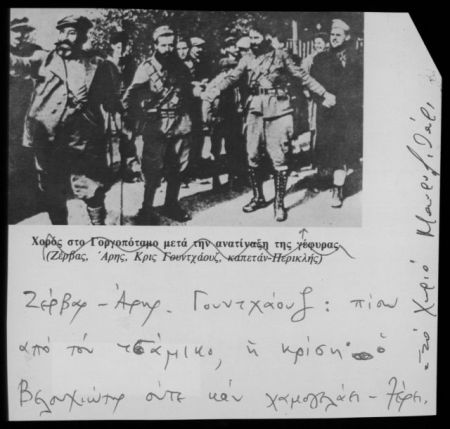 Χορός στο Γοργοπόταμο μετά την ανατίναξη της γέφυρας
(Ζέρβας, Άρης, Κρις Γουντχάουζ, καπετάν-Περικλής)
Ζέρβας - Άρης. Γουντχάουζ: πίσω
από τον τσάμικο, η κρίση· ο
Βελουχιώτης ούτε κάν χαμογελάει -
στο Χωριό